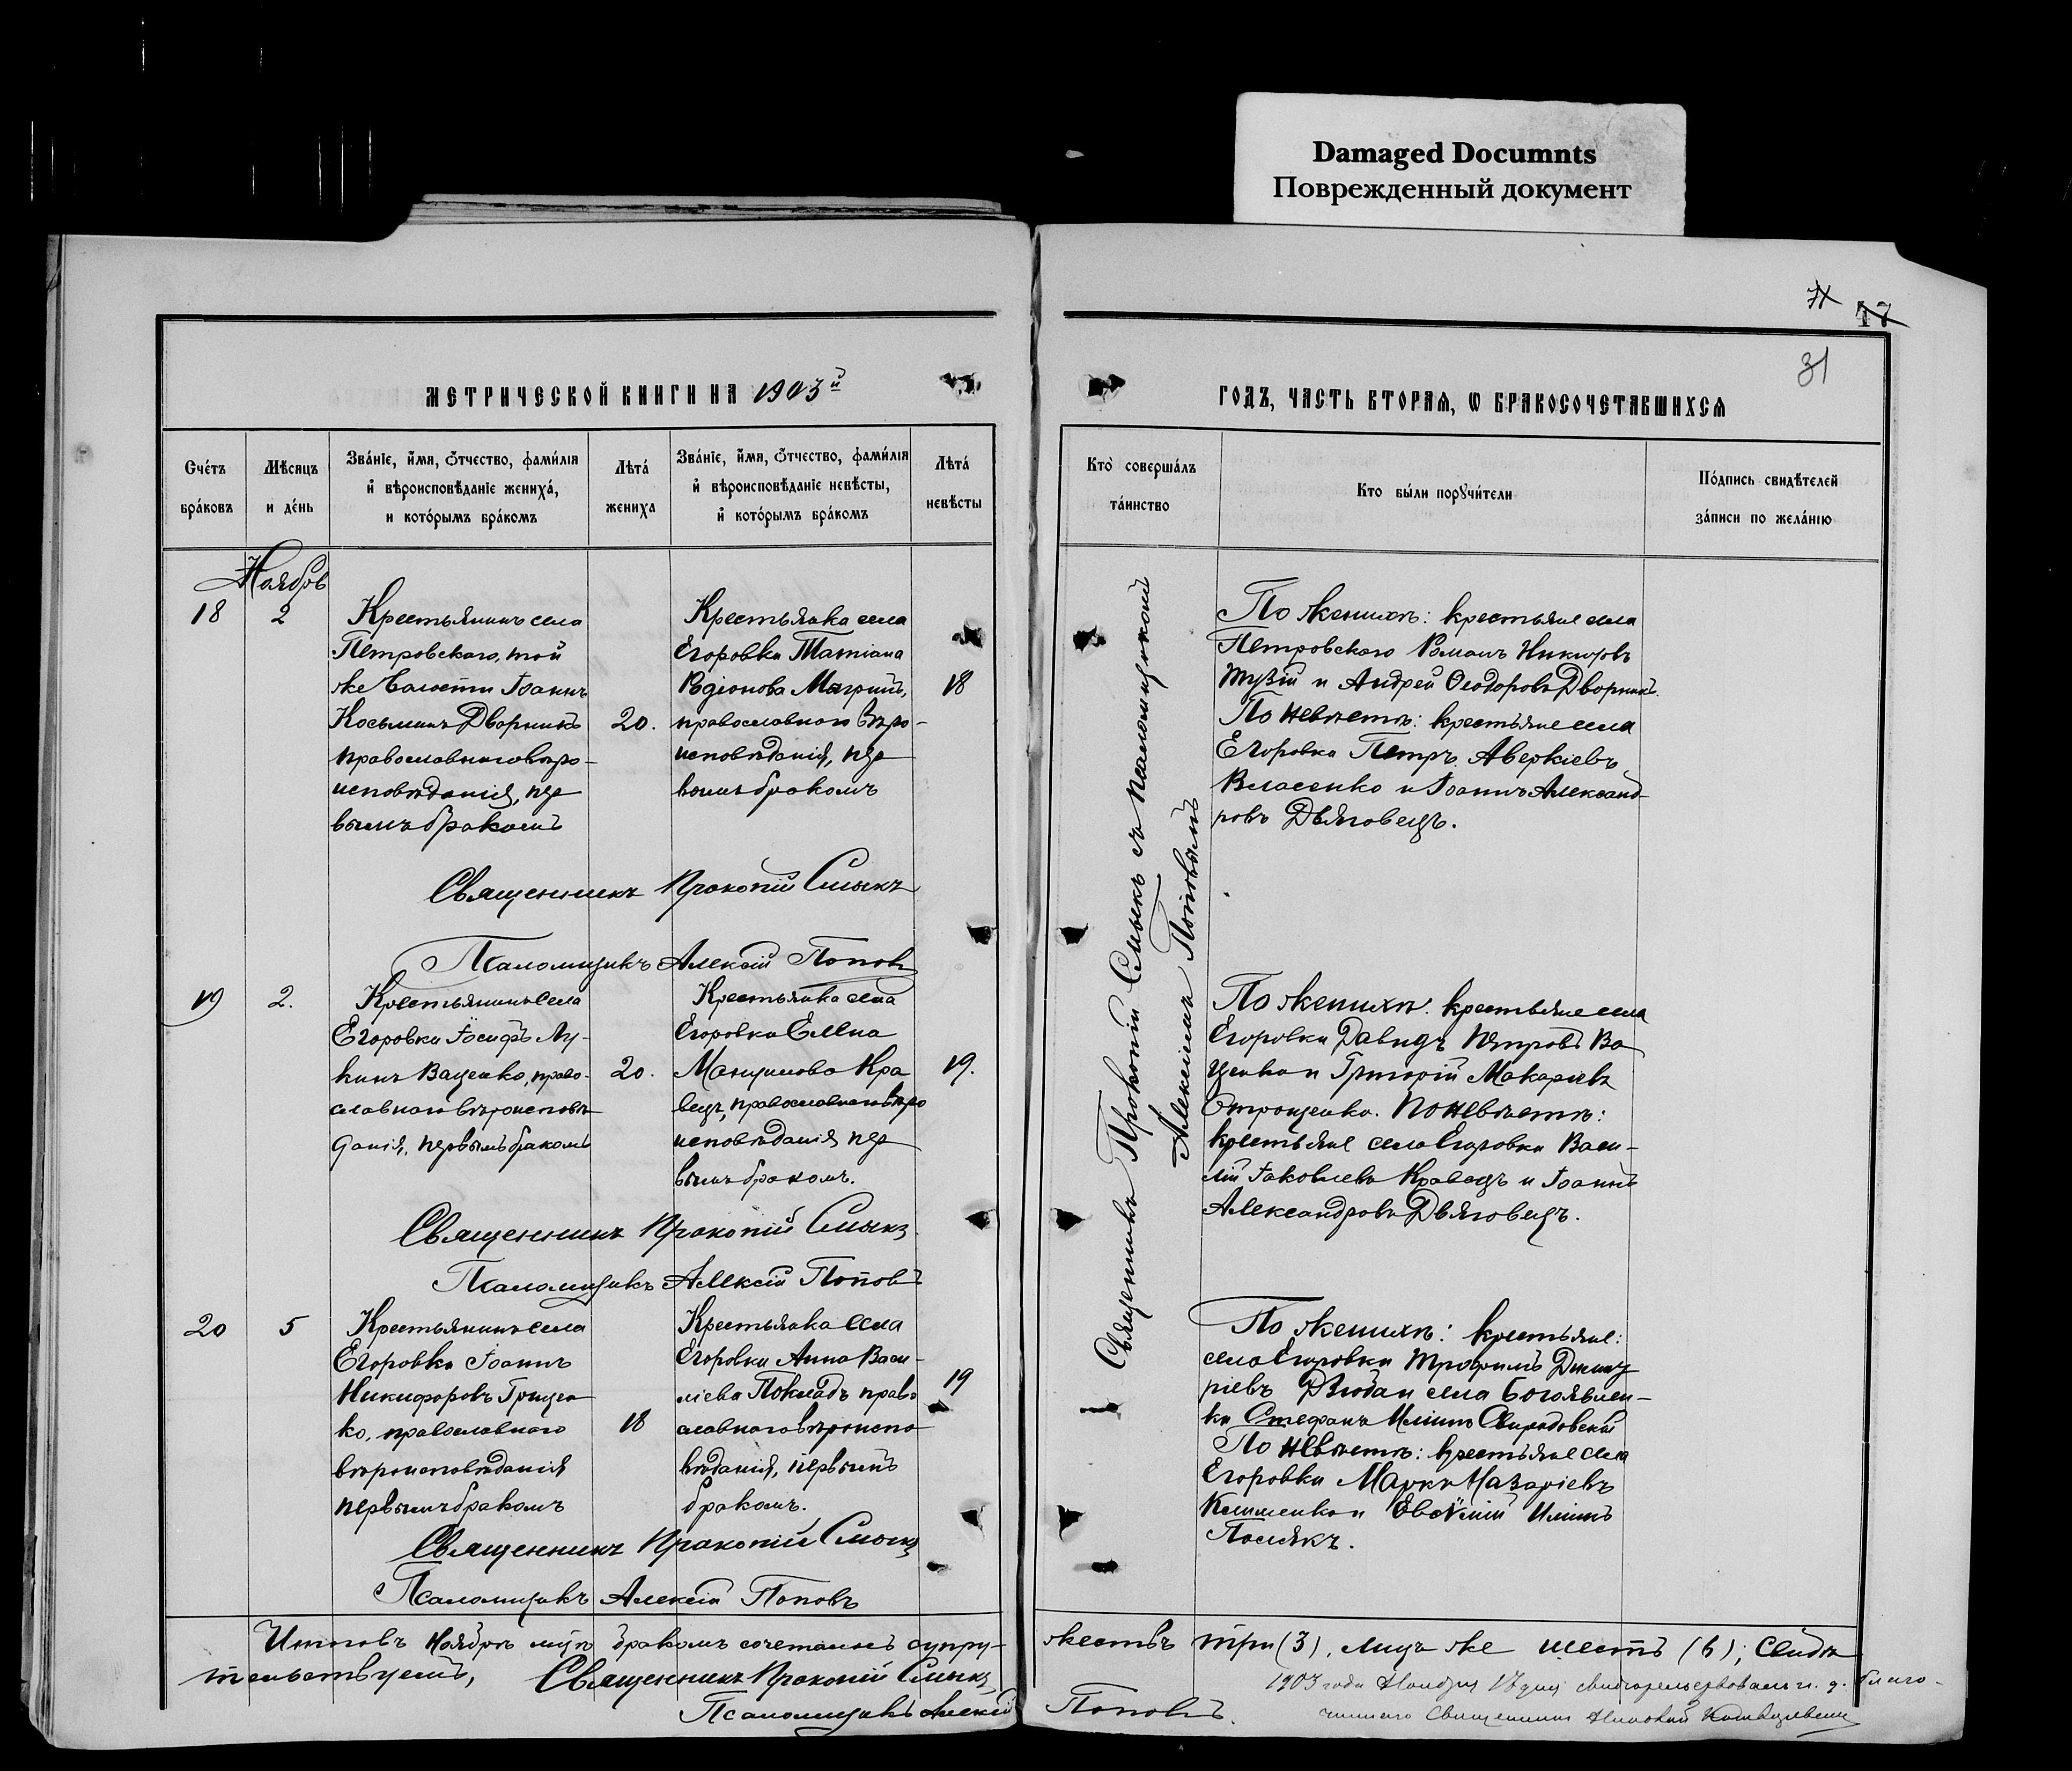 Damaged Documnts
Поврежденный документ
17
31
МЕТРИЧЕСКОЙ КНИГИ НА 1903й
ГОДЪ, ЧАСТЬ ВТОРАЯ, Ѡ БРАКОСОЧЕТАВШИХСЯ
Счетъ браковъ
Мѣсяцъ и день
Званіе, имя, отчество, фамилія
и вѣроисповѣданіе жениха,
и которымъ бракомъ
Лѣта жениха
Званіе, имя, отчество, фамилія
и вѣроисповѣданіе невѣсты,
и которымъ бракомъ
Лѣта невѣсты
Кто совершалъ таинство
Кто были поручители
Подпись свидѣтелей
записи по желанію
Ноябрь
18
2
Крестьянинъ села
Петровскаго, той
же волости Іоаннъ
Косьминъ Дворникъ
православнаго вѣро-
исповѣданія, пер
вымъ бракомъ
20.
Крестьянка села
Егоровки Татіана
Родіонова
православнаго вѣро-
исповѣданія, пер
вымъ бракомъ
18
По женихѣ: крестьяне села
Петровскаго Романъ
и Андрей Ѳеодоровъ Дворникъ.
По невѣстѣ: крестьяне села
Егоровки Петръ Аверкіевъ
Власенко и Іоаннъ Александ-
ровъ Двяговецъ.
Священникъ Прокопій Смыкъ съ псаломщикомъ
Алексіемъ Поповымъ
Священникъ Прокопій Смыкъ
Псаломщикъ Алексій Поповъ
19
2.
Крестьянинъ села
Егоровки Іосифъ Лу-
кинъ Ващенко, право-
славнаго вѣроисповѣ
данія, первымъ бракомъ
20.
Крестьянка села
Егоровки Елена
Мануилова Кра
вецъ, православнаго вѣро
исповѣданія пер
вымъ бракомъ.
19.
По женихѣ: крестьяне села
Егоровки Давидъ Петровъ Ва
щенко и Григорій Макаріевъ
Отрощенко. По невѣстѣ:
крестьяне села Егоровки Васи-
лій Іаковлевъ Кравецъ и Іоаннъ
Александровъ Двяговецъ.
Священникъ Прокопій Смыкъ
Псаломщикъ Алексій Поповъ
20
5
Крестьянинъ села
Егоровки Іоаннъ
Никифоровъ Грицен
ко, православнаго
вѣроисповѣданія
первымъ бракомъ
18
Крестьянка села
Егоровки Анна Васи-
ліева Покладъ право
славнаго вѣроиспо
вѣданія, первымъ
бракомъ.
19
По женихѣ: крестьяне:
села Егоровки Трофимъ Димит
ріевъ Дзюба и села Богоявлен-
ки Стефанъ Иліинъ
По невѣстѣ: крестьяне села
Егоровки Маркъ Назаріевъ
Клименко и Евѳимій Иліинъ
Полякъ.
Священникъ Прокопій Смыкъ
Псаломщикъ Алексій Поповъ
Итого въ Ноябрѣ м-цѣ бракомъ сочеталось супру-
жествъ три (3), лицъ же шесть (6); Свидѣ
тельствуемъ, Священникъ Прокопій Смыкъ
Псаломщикъ Алексій
Поповъ.
1903 года Ноября 17 дня свидѣтельствовалъ и. д. благо-
чиннаго Священникъ